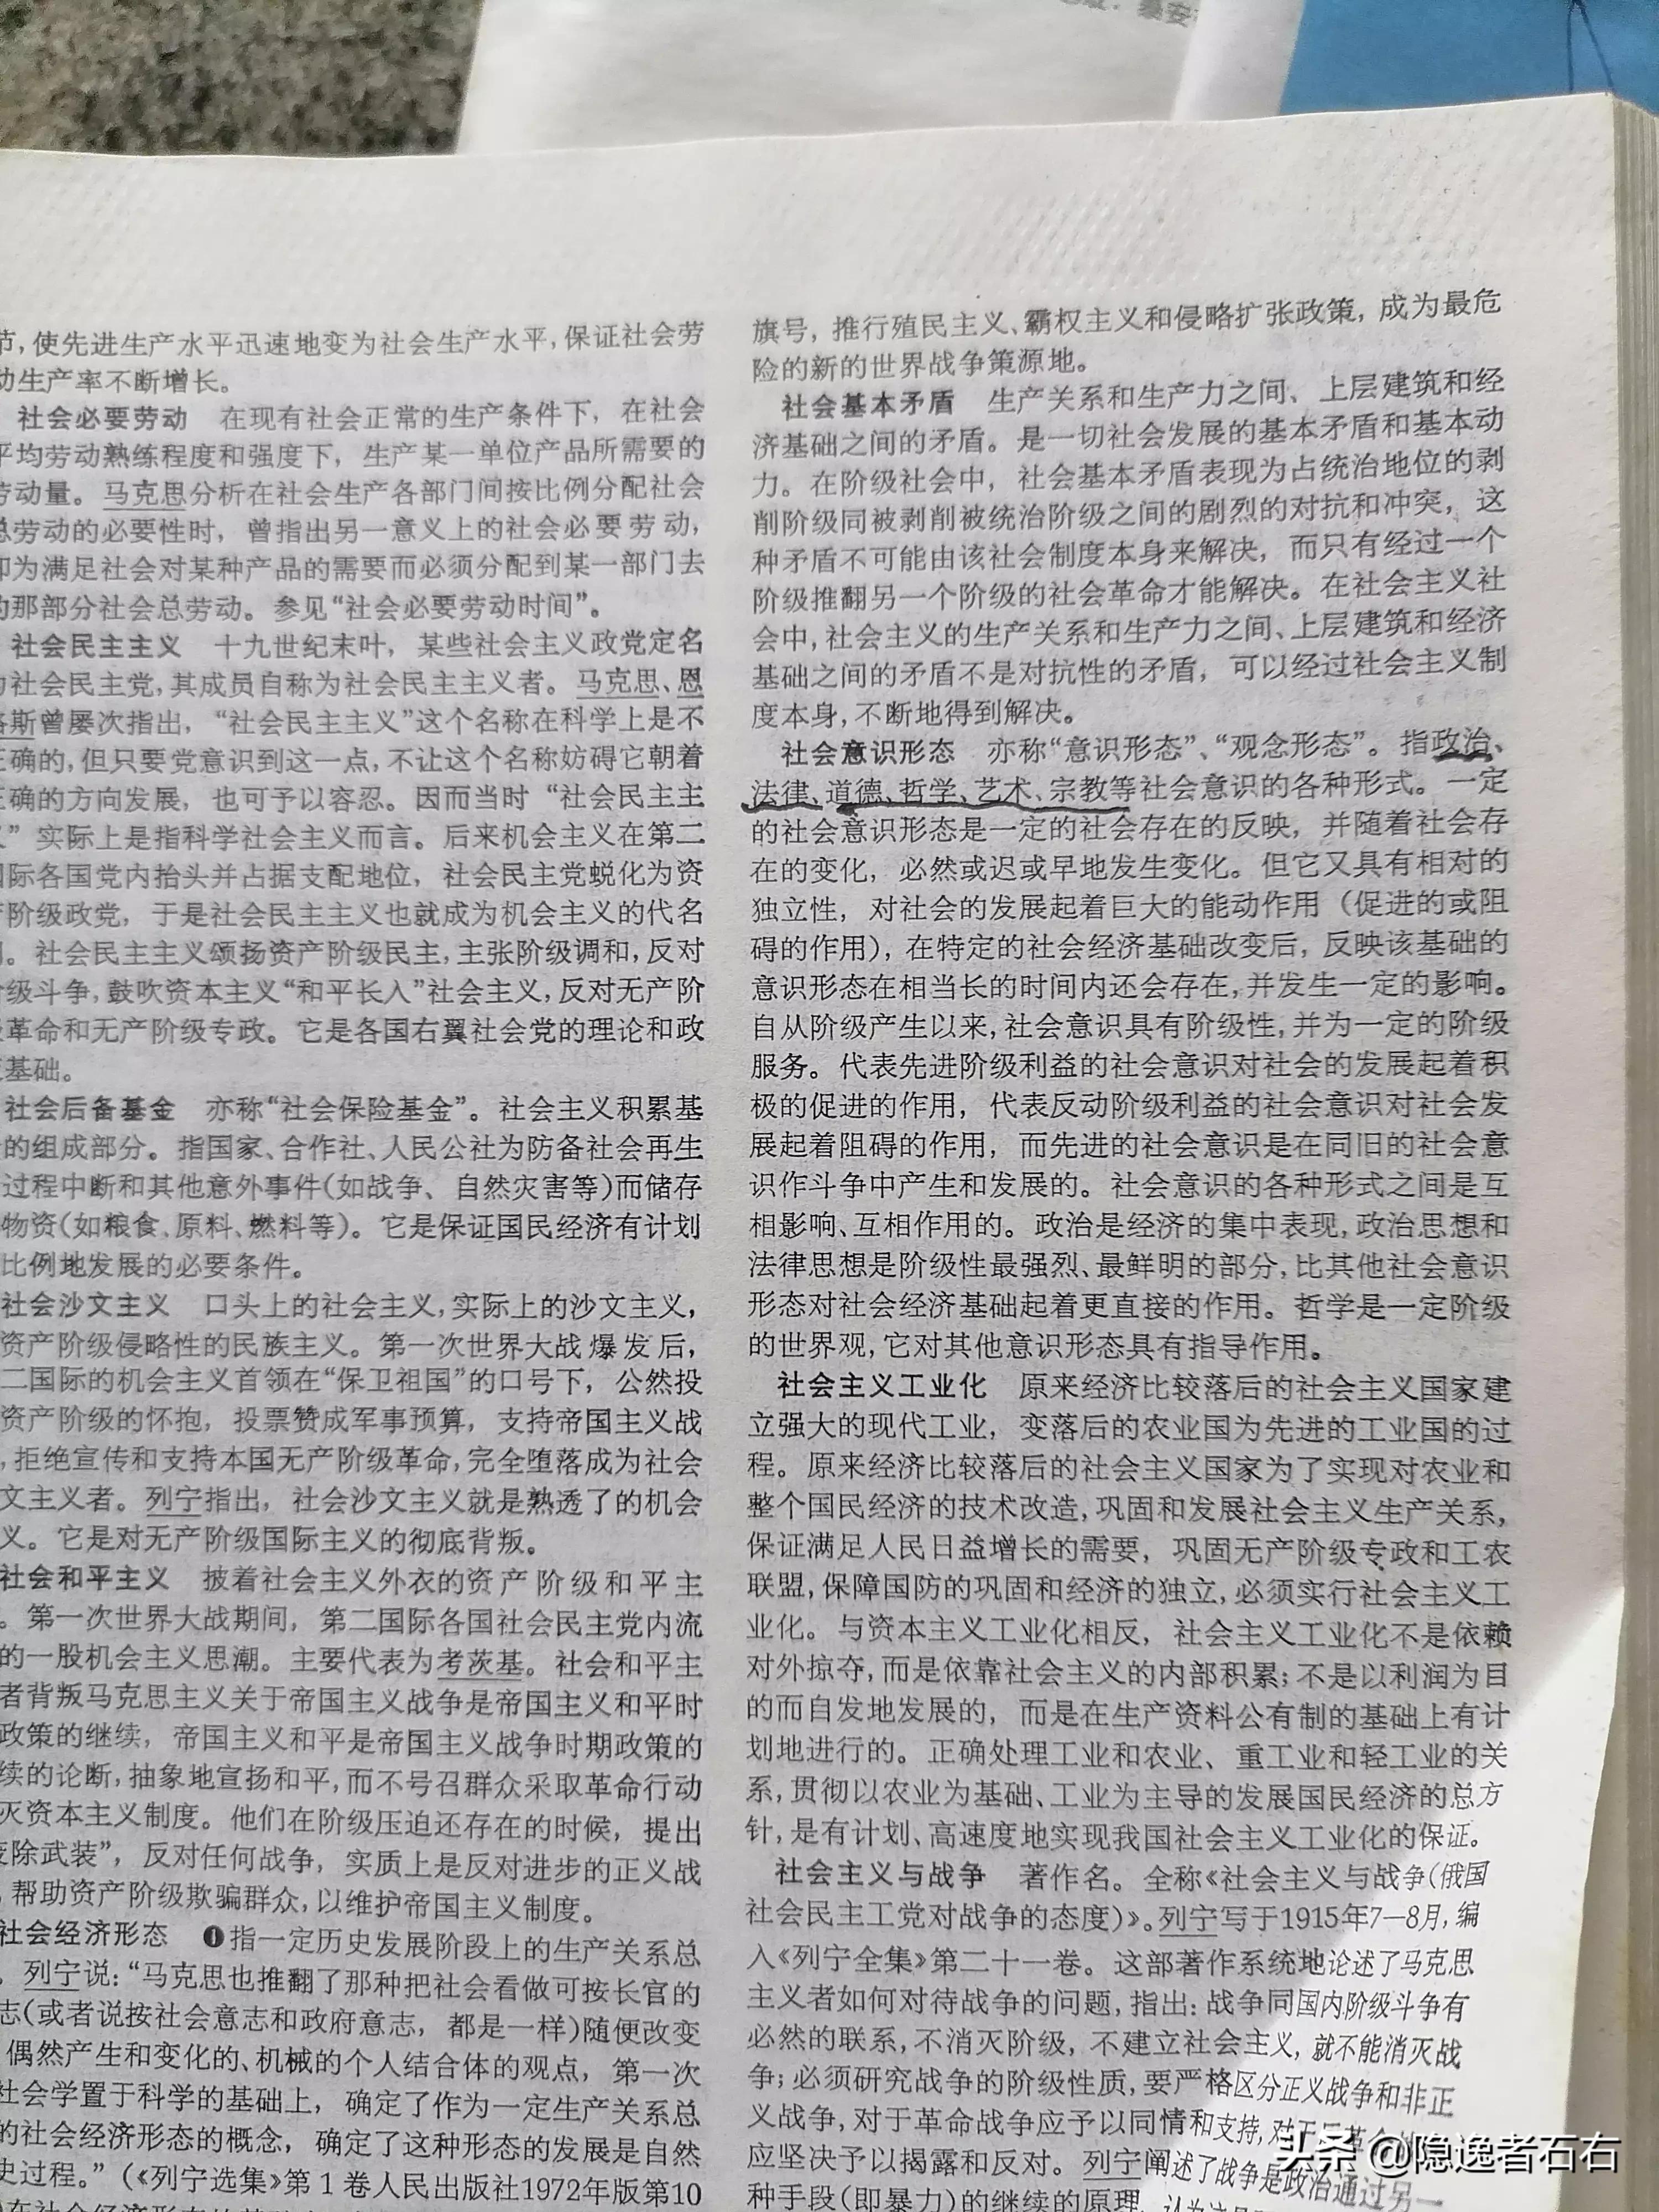 节,使先进生产水平迅速地变为社会生产水平,保证社会劳
动生产率不断增长。
社会必要劳动 在现有社会正常的生产条件下,在社会
平均劳动熟练程度和强度下,生产某一单位产品所需要的
劳动量。马克思分析在社会生产各部门间按比例分配社会
总劳动的必要性时,曾指出另一意义上的社会必要劳动,
即为满足社会对某种产品的需要而必须分配到某一部门去
的那部分社会总劳动。参见“社会必要劳动时间”。
社会民主主义 十九世纪末叶,某些社会主义政党定名
为社会民主党,其成员自称为社会民主主义者。马克思、恩
格斯曾屡次指出,“社会民主主义”这个名称在科学上是不
正确的,但只要党意识到这一点,不让这个名称妨碍它朝着
正确的方向发展,也可予以容忍。因而当时“社会民主主
义”实际上是指科学社会主义而言。后来机会主义在第二
国际各国党内抬头并占据支配地位,社会民主党蜕化为资
产阶级政党,于是社会民主主义也就成为机会主义的代名
。社会民主主义颂扬资产阶级民主,主张阶级调和,反对
阶级斗争,鼓吹资本主义“和平长入”社会主义,反对无产阶
级革命和无产阶级专政。它是各国右翼社会党的理论和政
基础。
社会后备基金 亦称“社会保险基金”。社会主义积累基
的组成部分。指国家、合作社、人民公社为防备社会再生
过程中断和其他意外事件(如战争、自然灾害等)而储存
物资(如粮食、原料、燃料等)。它是保证国民经济有计划
比例地发展的必要条件。
社会沙文主义 口头上的社会主义,实际上的沙文主义,
资产阶级侵略性的民族主义。第一次世界大战爆发后,
二国际的机会主义首领在“保卫祖国”的口号下,公然投
资产阶级的怀抱,投票赞成军事预算,支持帝国主义战
,拒绝宣传和支持本国无产阶级革命,完全堕落成为社会
文主义者。列宁指出,社会沙文主义就是熟透了的机会
义。它是对无产阶级国际主义的彻底背叛。
社会和平主义 披着社会主义外衣的资产阶级和平主
。第一次世界大战期间,第二国际各国社会民主党内流
的一股机会主义思潮。主要代表为考茨基。社会和平主
者背叛马克思主义关于帝国主义战争是帝国主义和平时
政策的继续,帝国主义和平是帝国主义战争时期政策的
续的论断,抽象地宣扬和平,而不号召群众采取革命行动
灭资本主义制度。他们在阶级压迫还存在的时候,提出
废除武装”,反对任何战争,实质上是反对进步的正义战
,帮助资产阶级欺骗群众,以维护帝国主义制度。
社会经济形态 ❶指一定历史发展阶段上的生产关系总
。列宁说:“马克思也推翻了那种把社会看做可按长官的
志(或者说按社会意志和政府意志,都是一样)随便改变
偶然产生和变化的、机械的个人结合体的观点,第一次
社会学置于科学的基础上,确定了作为一定生产关系总
的社会经济形态的概念,确定了这种形态的发展是自然
史过程。”(《列宁选集》第1卷人民出版社1972年版第10
旗号,推行殖民主义、霸权主义和侵略扩张政策,成为最危
险的新的世界战争策源地。
社会基本矛盾 生产关系和生产力之间、上层建筑和经
济基础之间的矛盾。是一切社会发展的基本矛盾和基本动
力。在阶级社会中,社会基本矛盾表现为占统治地位的剥
削阶级同被剥削被统治阶级之间的剧烈的对抗和冲突,这
种矛盾不可能由该社会制度本身来解决,而只有经过一个
阶级推翻另一个阶级的社会革命才能解决。在社会主义社
会中,社会主义的生产关系和生产力之间、上层建筑和经济
基础之间的矛盾不是对抗性的矛盾,可以经过社会主义制
度本身,不断地得到解决。
社会意识形态 亦称“意识形态”、“观念形态”。指政治、
法律、道德、哲学、艺术、宗教等社会意识的各种形式。一定
的社会意识形态是一定的社会存在的反映,并随着社会存
在的变化,必然或迟或早地发生变化。但它又具有相对的
独立性,对社会的发展起着巨大的能动作用(促进的或阻
碍的作用),在特定的社会经济基础改变后,反映该基础的
意识形态在相当长的时间内还会存在,并发生一定的影响。
自从阶级产生以来,社会意识具有阶级性,并为一定的阶级
服务。代表先进阶级利益的社会意识对社会的发展起着积
极的促进的作用,代表反动阶级利益的社会意识对社会发
展起着阻碍的作用,而先进的社会意识是在同旧的社会意
识作斗争中产生和发展的。社会意识的各种形式之间是互
相影响、互相作用的。政治是经济的集中表现,政治思想和
法律思想是阶级性最强烈、最鲜明的部分,比其他社会意识
形态对社会经济基础起着更直接的作用。哲学是一定阶级
的世界观,它对其他意识形态具有指导作用。
社会主义工业化 原来经济比较落后的社会主义国家建
立强大的现代工业,变落后的农业国为先进的工业国的过
程。原来经济比较落后的社会主义国家为了实现对农业和
整个国民经济的技术改造,巩固和发展社会主义生产关系,
保证满足人民日益增长的需要,巩固无产阶级专政和工农
联盟,保障国防的巩固和经济的独立,必须实行社会主义工
业化。与资本主义工业化相反,社会主义工业化不是依赖
对外掠夺,而是依靠社会主义的内部积累;不是以利润为目
的而自发地发展的,而是在生产资料公有制的基础上有计
划地进行的。正确处理工业和农业、重工业和轻工业的关
系,贯彻以农业为基础、工业为主导的发展国民经济的总方
针,是有计划、高速度地实现我国社会主义工业化的保证。
社会主义与战争 著作名。全称《社会主义与战争(俄国
社会民主工党对战争的态度)》。列宁写于1915年7—8月,编
入《列宁全集》第二十一卷。这部著作系统地论述了马克思
主义者如何对待战争的问题,指出:战争同国内阶级斗争有
必然的联系,不消灭阶级,不建立社会主义,就不能消灭战
争;必须研究战争的阶级性质,要严格区分正义战争和非正
义战争,对于革命战争应予以同情和支持,对于
应坚决予以揭露和反对。列宁阐述了战争是政治通过另一
种手段(即暴力)的继续的原理,
头条 @隐逸者石右